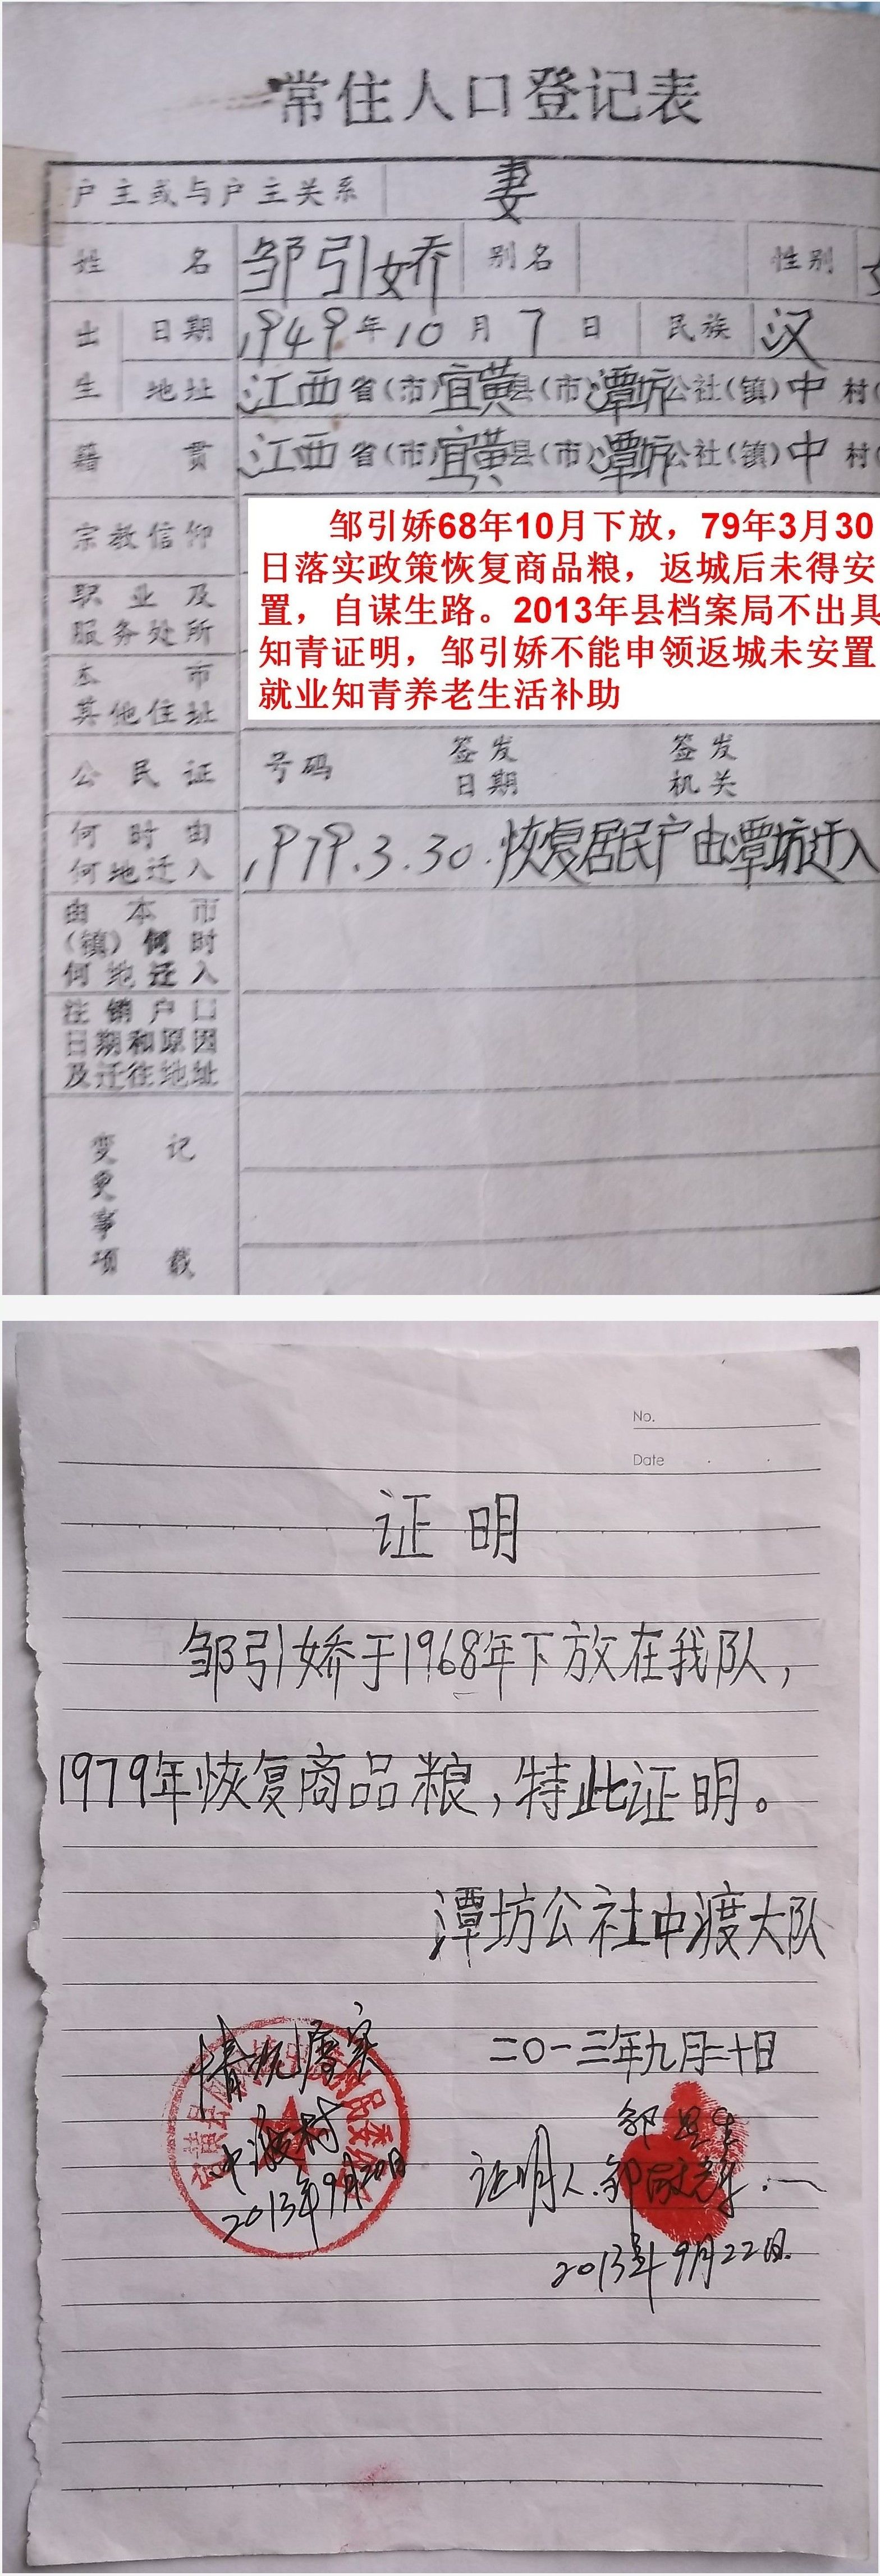 常住人口登记表
户主或与户主关系 妻
姓名 邹引娇 别名 性别
出生 日期 1949年10月7日 民族 汉
地址 江西省(市)宜黄县(市)潭坊公社(镇)中村
籍贯 江西省(市)宜黄县(市)潭坊公社(镇)中村
宗教信仰
邹引娇68年10月下放，79年3月30
日落实政策恢复商品粮，返城后未得安
置，自谋生路。2013年县档案局不出具
知青证明，邹引娇不能申领返城未安置
就业知青养老生活补助
职业及
服务处所
本市
其他住址
公民证 号码 签发日期 签发机关
何时由
何地迁入 1979.3.30.恢复居民户由潭坊迁入
由本市
(镇)何时
何地迁入
注销户口
日期和原因
及迁往地址
变更事项记载
No.
Date
证明
邹引娇于1968年下放在我队，
1979年恢复商品粮，特此证明。
潭坊公社中渡大队
二〇一三年九月二十日
情况属实
中渡村
2013年9月20日
证明人:邹
2013年9月22日.